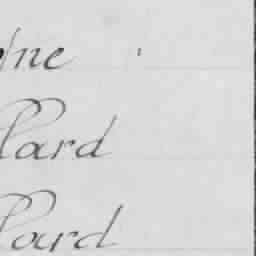 yne
lard
lard